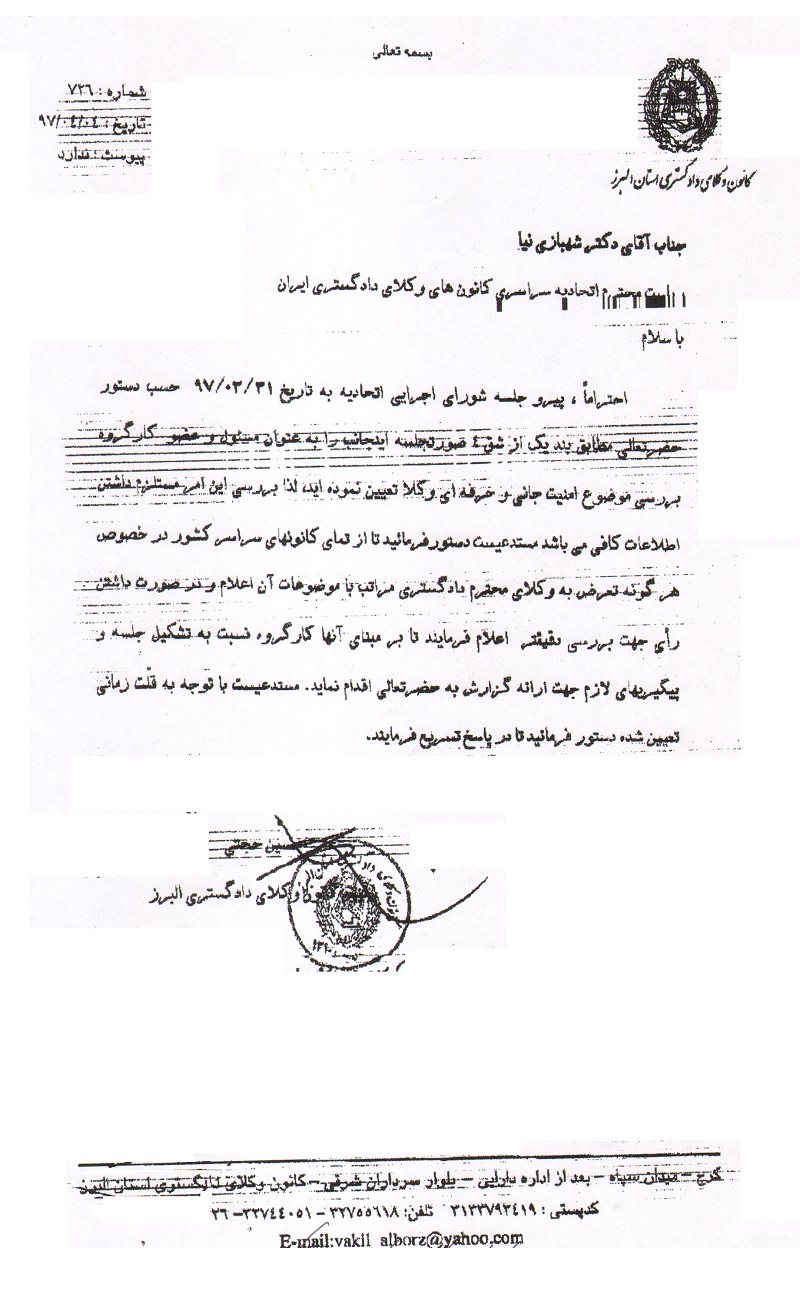 بسمه تعالی
شماره : ۷۲۶
تاریخ : ۹۷/۰۴/۰۴
پیوست : ندارد
کانون وکلای دادگستری استان البرز
جناب آقای دکتر شهبازی نیا
ریاست محترم اتحادیه سراسری کانون های وکلای دادگستری ایران
با سلام
احتراماً ، پیرو جلسه شورای اجرایی اتحادیه به تاریخ ۹۷/۰۳/۳۱ حسب دستور
حضرتعالی مطابق بند یک از شق ٤ صورتجلسه اینجانب را به عنوان مسئول و عضو کارگروه
بررسی موضوع امنیت جانی و حرفه ای وکلا تعیین نموده اید، لذا بررسی این امر مستلزم داشتن
اطلاعات کافی می باشد مستدعیست دستور فرمائید تا از تمای کانونهای سراسر کشور در خصوص
هر گونه تعرض به وکلای محترم دادگستری مراتب با موضوعات آن اعلام و در صورت داشتن
رأی جهت بررسی دقیقتر اعلام فرمایند تا بر مبنای آنها کارگروه نسبت به تشکیل جلسه و
پیگیریهای لازم جهت ارائه گزارش به حضرتعالی اقدام نماید. مستدعیست با توجه به قلّت زمانی
تعیین شده دستور فرمائید تا در پاسخ تسریع فرمایند.
حسین حجتی
کانون وکلای دادگستری البرز
کرج – میدان سپاه – بعد از اداره دارایی – بلوار سرداران شرقی – کانون وکلای دادگستری استان البرز
کدپستی : ۳۱۳۳۷۹۳٤۱۹ تلفن: ۳۲۷۵۵٦۱۸ – ۳۲۷٤٤۰۵۱ – ۲٦
E-mail:vakil_alborz@yahoo.com